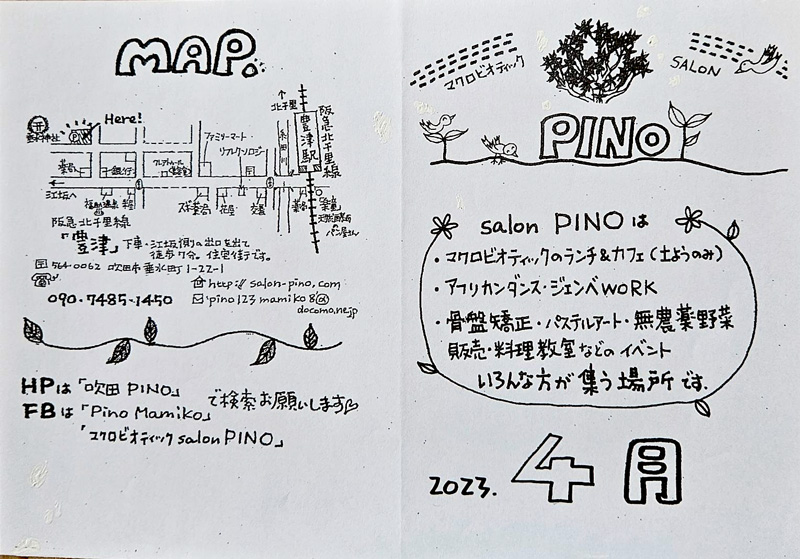 MAP.
Here!
北千里
阪急北千里線
豊津駅
糸田川
ファミリーマート
リフレクソロジー
薬局
千銀行
江坂へ
スギ薬局
花屋
交番
薬局
パン屋さん
阪急・北千里線
「豊津」下車・江坂側の出口を出て
徒歩7分。住宅街です。
〒564-0062 吹田市垂水町1-22-1
☎
090-7485-1450
http://salon-pino.com
pino123mamiko8@
docomo.ne.jp
HPは「吹田PINO」
FBは「Pino Mamiko」
「マクロビオティック salon PINO」
で検索お願いします♡
マクロビオティック
SALON
PINO
salon PINO は
・マクロビオティックのランチ&カフェ(土ようのみ)
・アフリカンダンス・ジェンベWORK
・骨盤矯正・パステルアート・無農薬野菜
販売・料理教室などのイベント
いろんな方が集う場所です。
2023. 4月